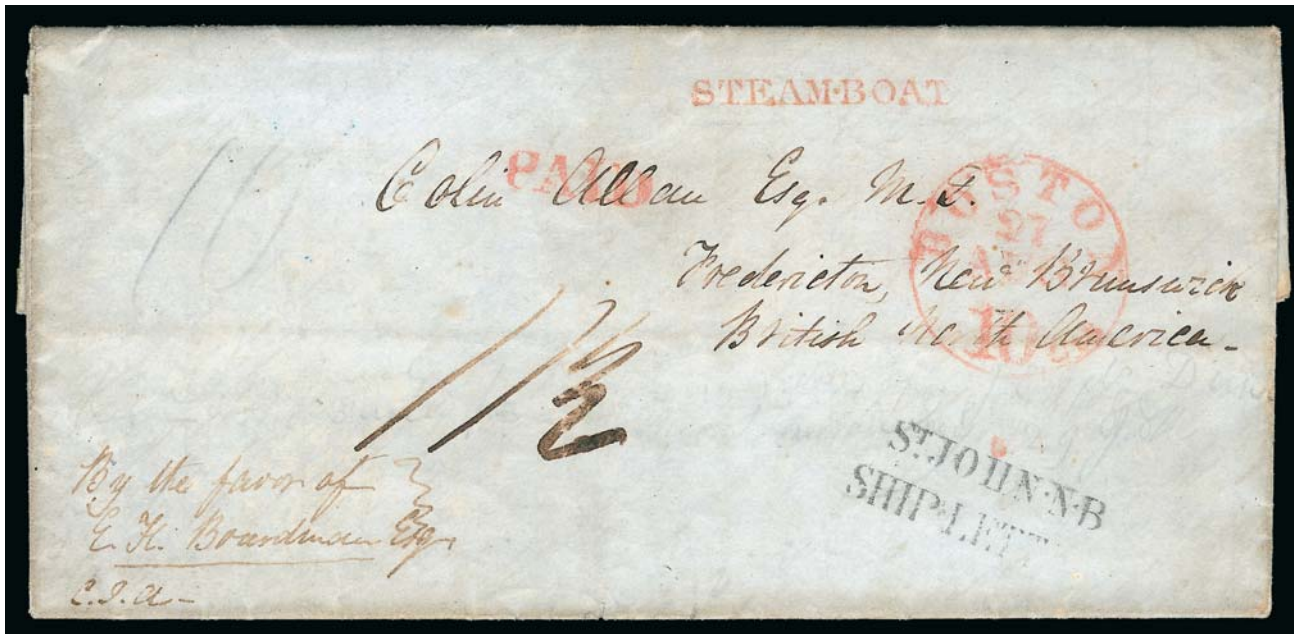 STEAM·BOAT
10
PAID
Colin Allan Esq. M.D.
BOSTON
27
Fredericton, New Brunswick
British North America -
10 cts
1/2
ST. JOHN·N·B
SHIP·LETT
By the favor of
E. H. Boardman Esqr